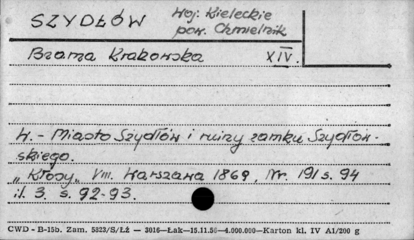 SZYDŁÓW
Woj. Kieleckie
pow. Chmielnik
Brama Krakowska XIV.
W. - Miasto Szydłów i ruiny zamku Szydłow-
skiego.
"Kłosy" VIII. Warszawa 1869, Nr. 191 s. 94
il. 3. s. 92-93.
CWD - B-15b. Zam. 5323/S/Łż — 3016—Łak—15.11.56—4.000.000—Karton kl. IV A1/200 g